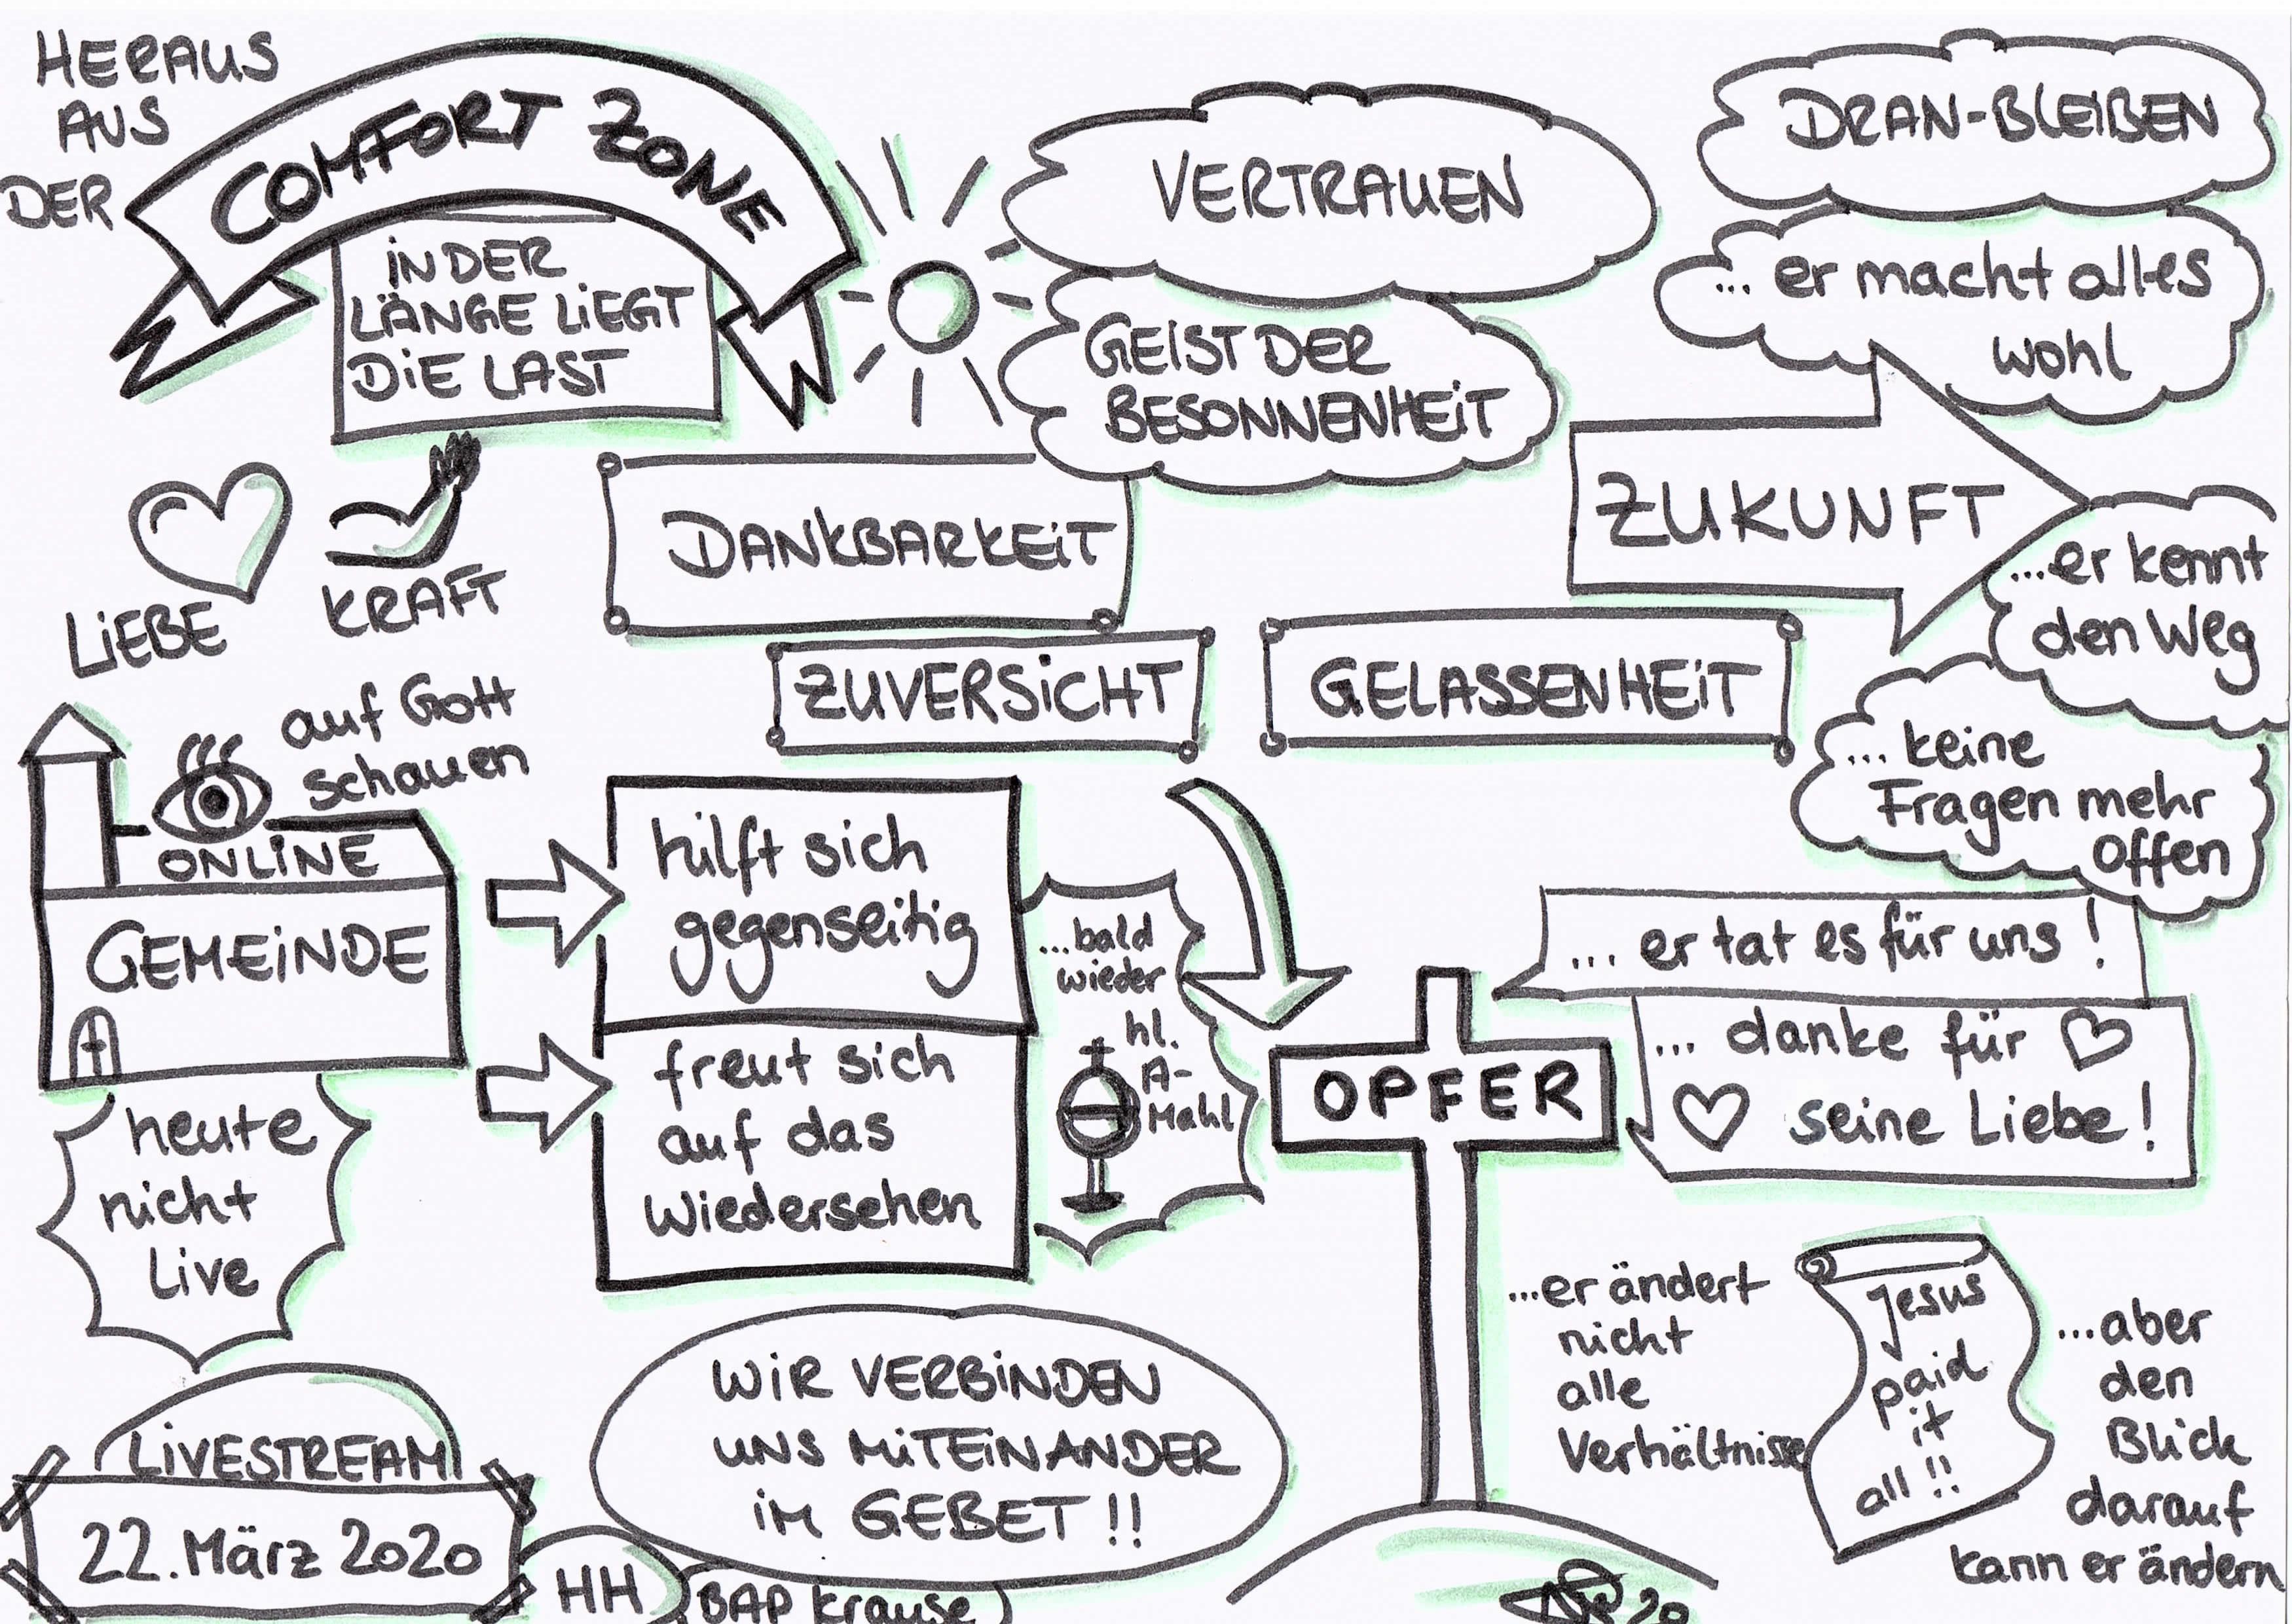 HERAUS
AUS
DER
COMFORT ZONE
IN DER
LÄNGE LIEGT
DIE LAST
VERTRAUEN
GEIST DER
BESONNENHEIT
DRAN-BLEIBEN
... er macht alles
wohl
LIEBE
KRAFT
DANKBARKEIT
ZUKUNFT
...er kennt
den Weg
ZUVERSICHT
GELASSENHEIT
... keine
Fragen mehr
offen
auf Gott
schauen
ONLINE
GEMEINDE
heute
nicht
Live
hilft sich
gegenseitig
freut sich
auf das
Wiedersehen
...bald
wieder
hl.
A-
Mahl
OPFER
... er tat es für uns!
... danke für
seine Liebe!
...er ändert
nicht
alle
Verhältnisse
Jesus
paid
it
all!!
...aber
den
Blick
darauf
kann er ändern
WIR VERBINDEN
UNS MITEINANDER
IM GEBET!!
LIVESTREAM
22. März 2020
HH
BAP Krause
20